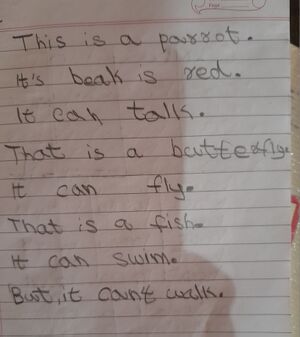 This is a parrot.
It's beak is red.
It can talk.
That is a butterfly.
It can fly.
That is a fish.
It can swim.
But, it cant walk.